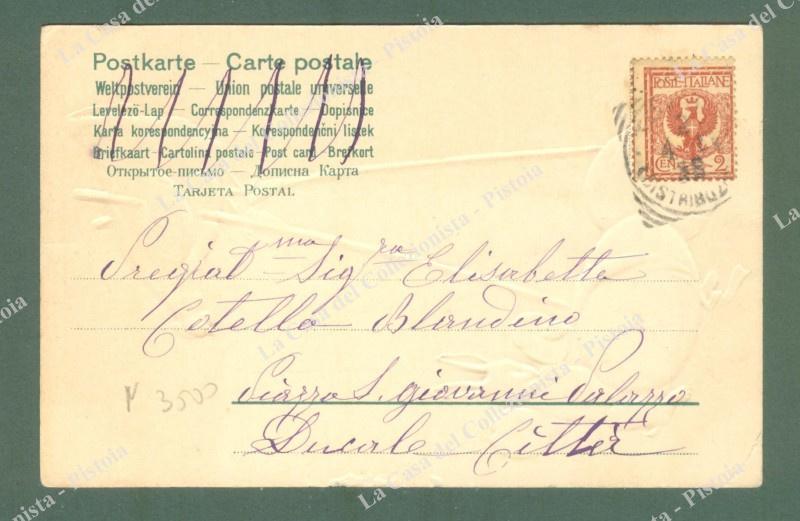 Postkarte — Carte postale
Weltpostverein — Union postale universelle
Levelező-Lap — Correspondenzkarte — Dopisnice
Karta korespondencyjna — Korespondenční lístek
Briefkaart — Cartolina postale — Post card — Brefkort
Открытое письмо — Дописна Карта
Tarjeta Postal
POSTE·ITALIANE
CENT 2
Pregiat ma Sig ra Elisabetta
Cotella Blandino
Piazza S. Giovanni Palazzo
Ducale Città
3500
La Casa del Collezionista - Pistoia